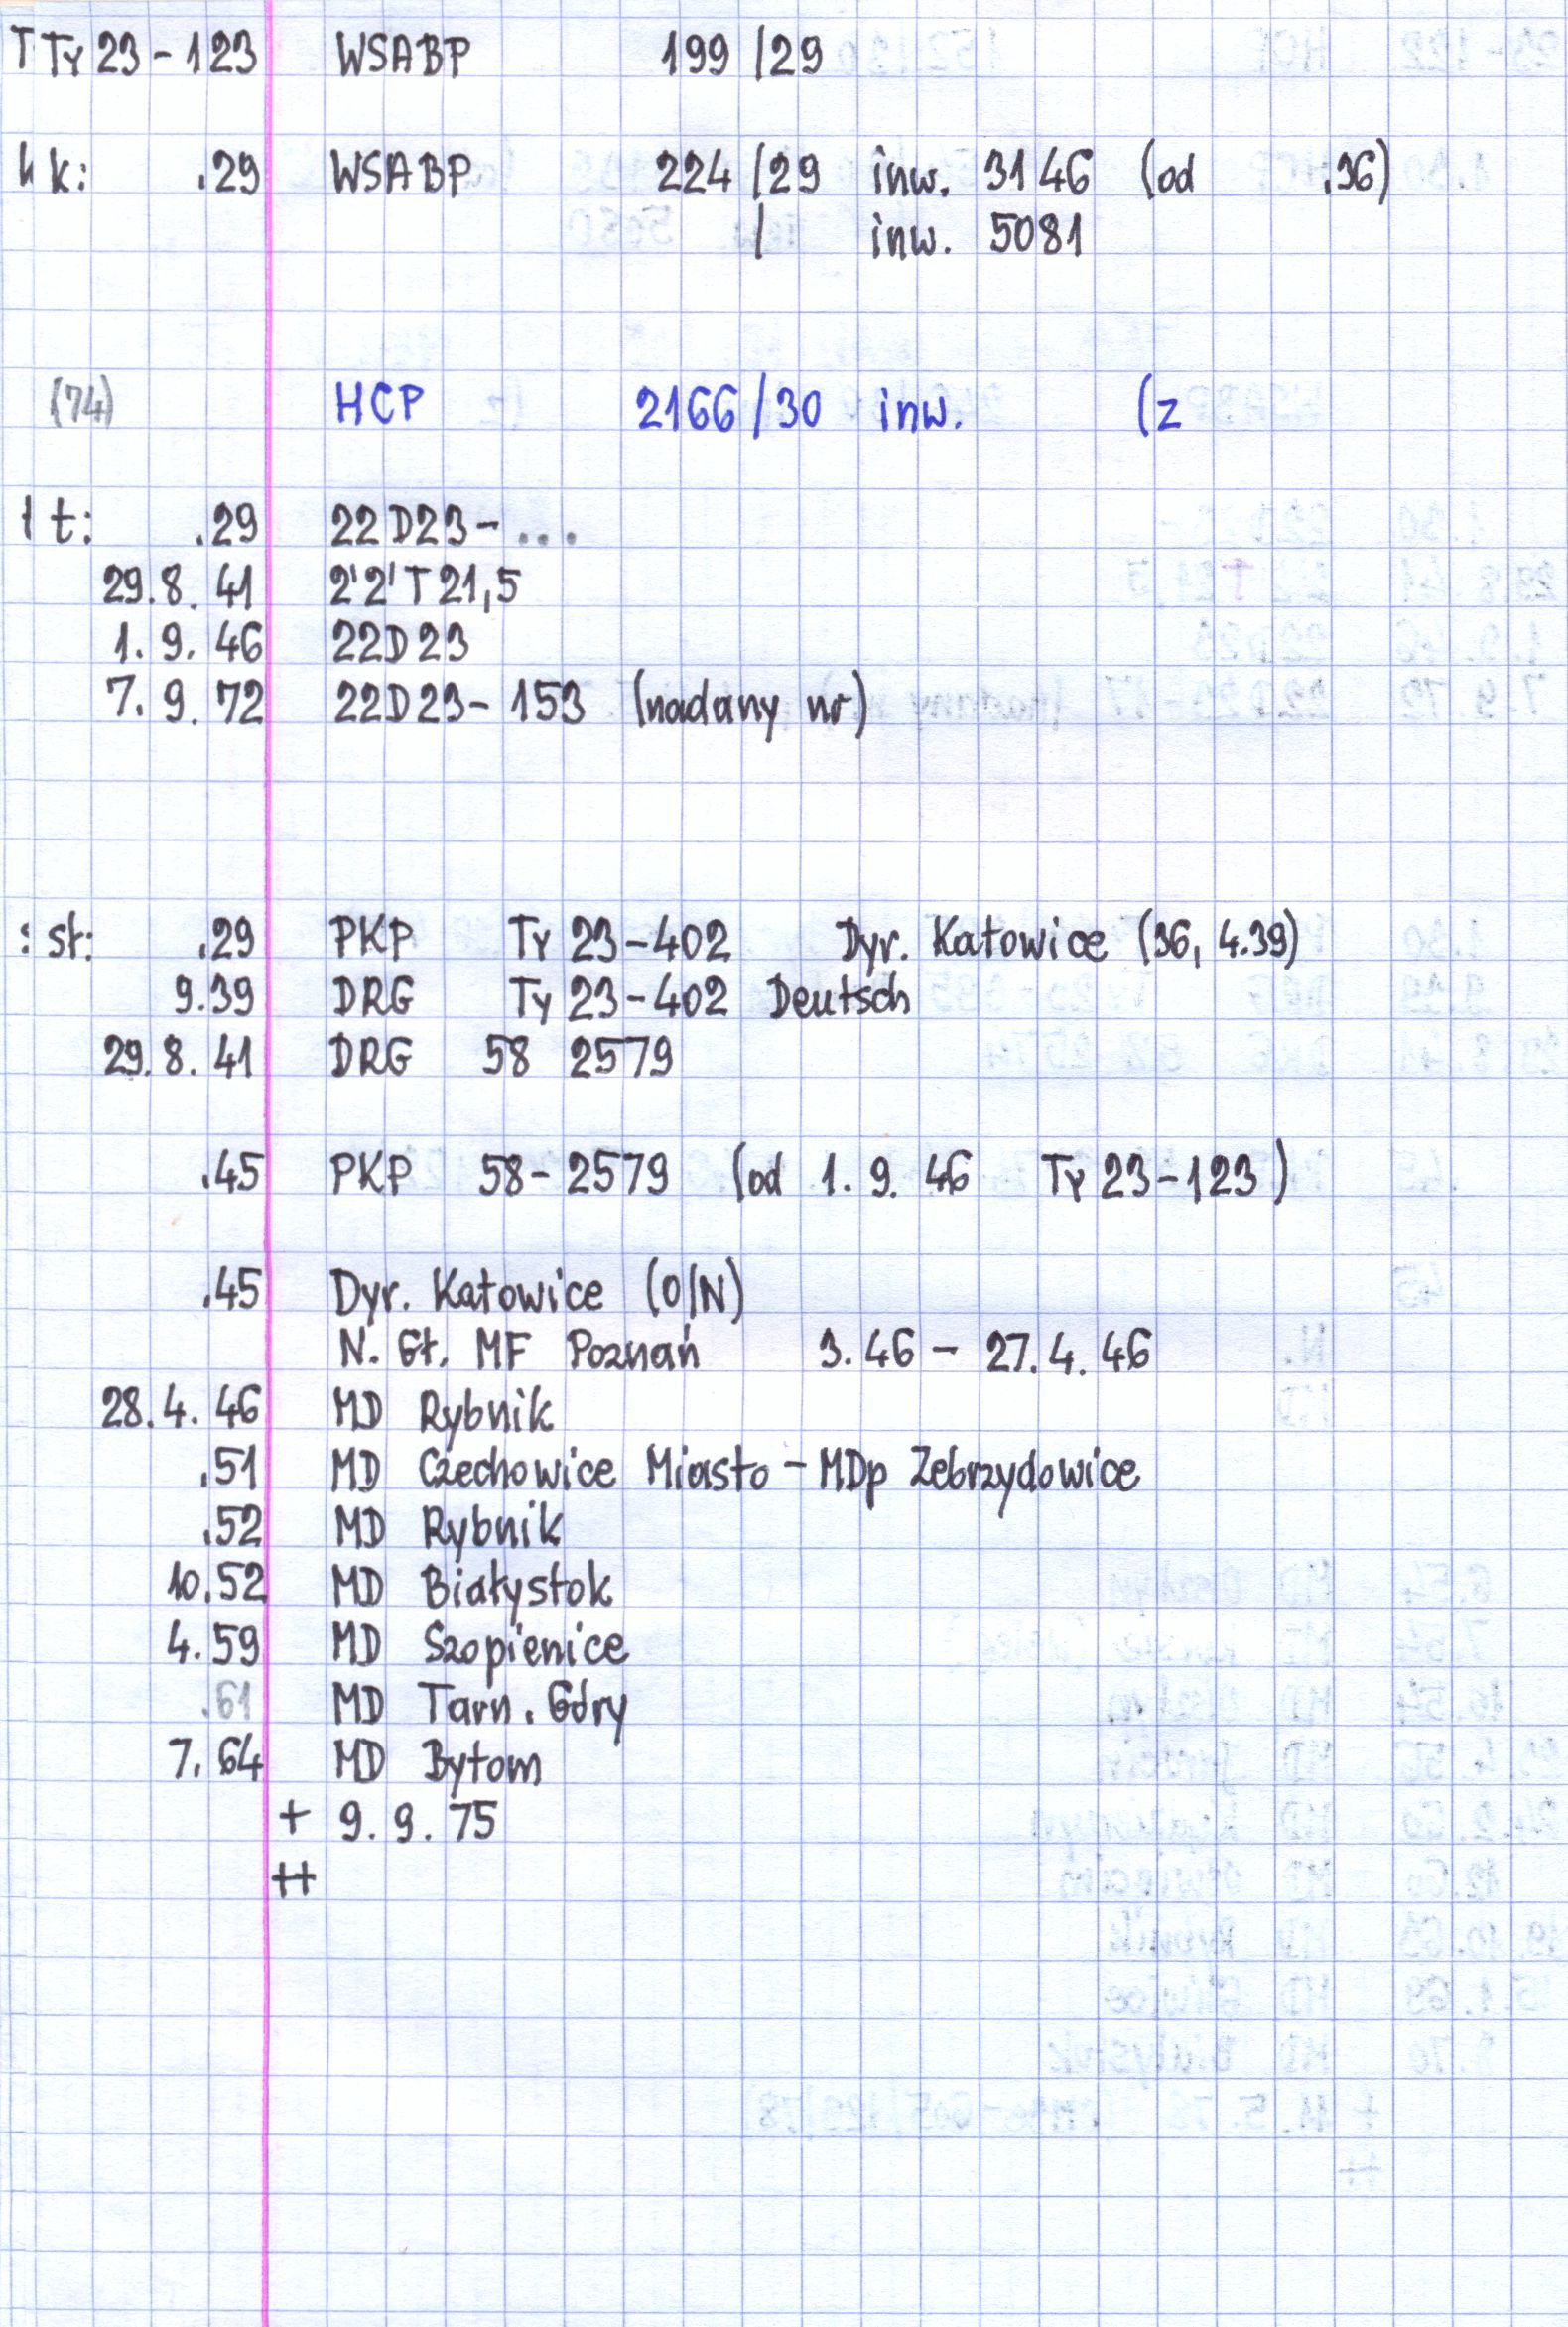 T Ty 23-123 WSABP 199/29
k: .29 WSABP 224/29 inw. 3146 (od .36)
/ inw. 5081
(74) HCP 2166/30 inw. (z
t: .29 22D23-...
29.8.41 2'2'T21,5
1.9.46 22D23
7.9.72 22D23-153 (nadany nr)
: sł: .29 PKP Ty 23-402 Dyr. Katowice (36, 4.39)
9.39 DRG Ty 23-402 Deutsch
29.8.41 DRG 58 2579
.45 PKP 58-2579 (od 1.9.46 Ty 23-123)
.45 Dyr. Katowice (O/N)
N. Gł. MF Poznań 3.46 - 27.4.46
28.4.46 MD Rybnik
.51 MD Czechowice Miasto - MDp Zebrzydowice
.52 MD Rybnik
10.52 MD Białystok
4.59 MD Szopienice
.61 MD Tarn. Góry
7.64 MD Bytom
+ 9.9.75
++